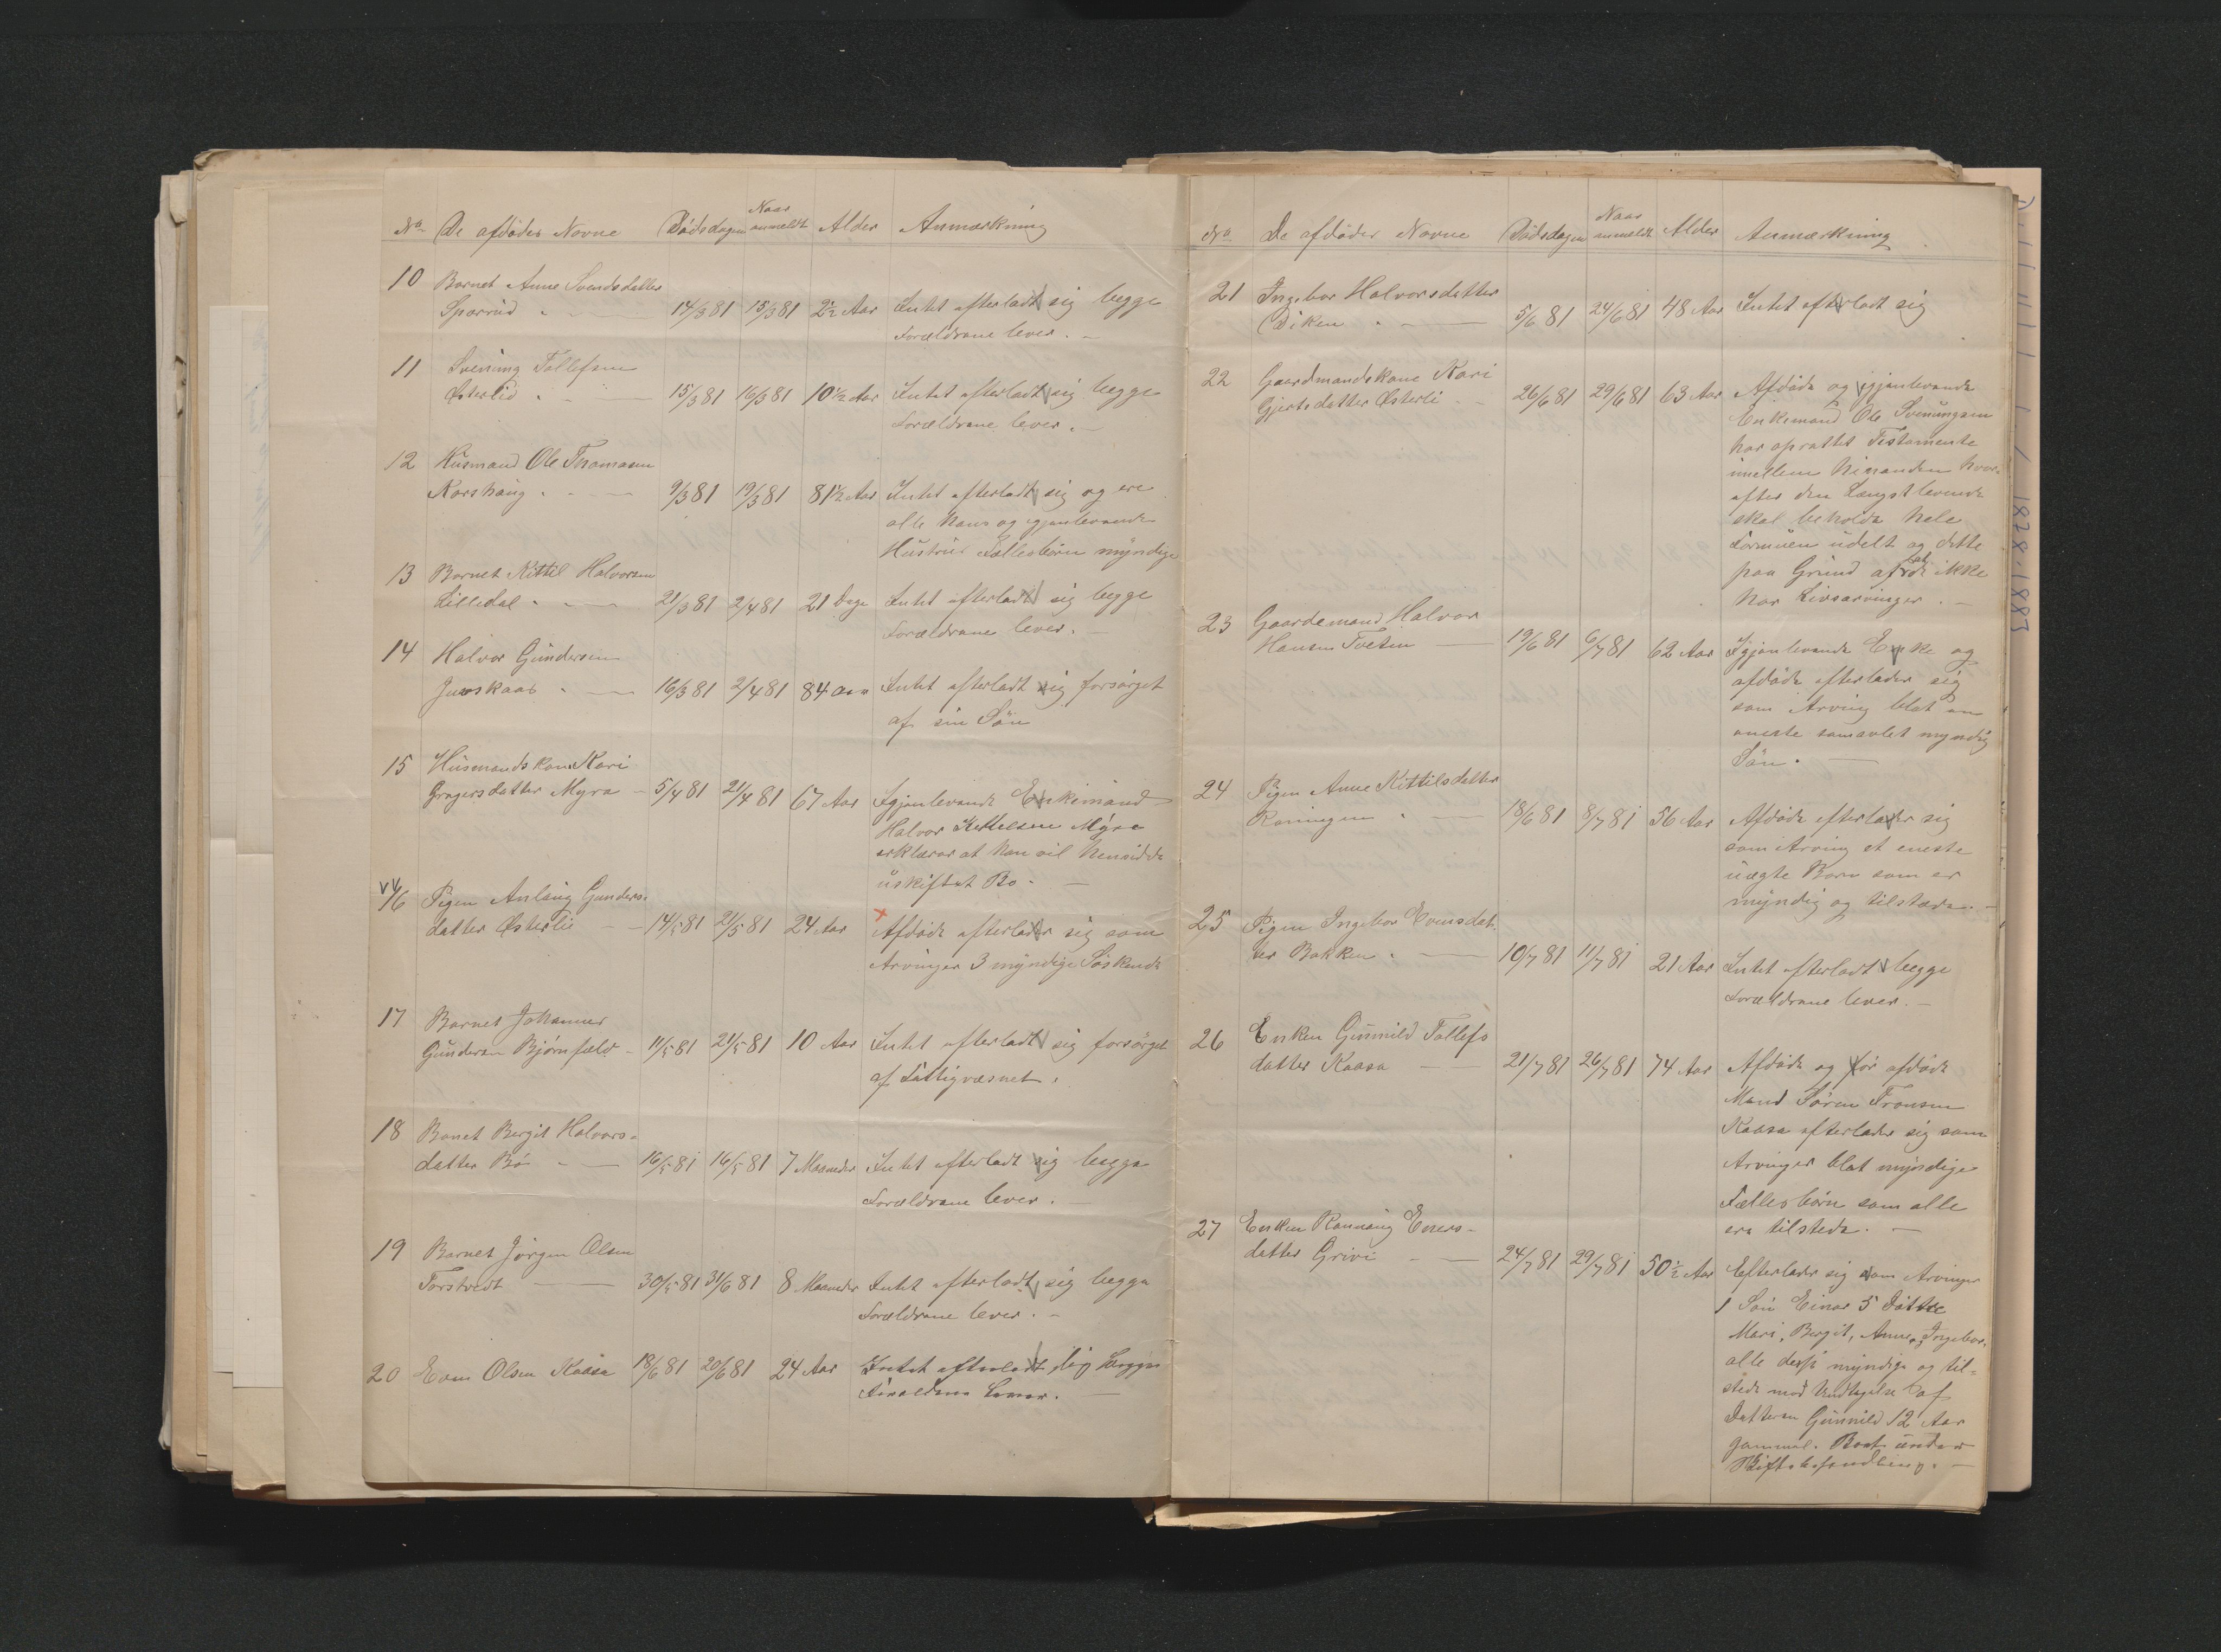 No De afdødes Navne Dødsdagen Naar anmeldt Alder Anmærkning
10 Barnet Anne Svendsdatter
Sparrud 14/3 81 15/3 81 2½ Aar Intet efterladt sig begge
Forældrene lever.
11 Svenung Tollefsen
Østerlid 15/3 81 16/3 81 10½ Aar Intet efterladt sig begge
Forældrene lever.
12 Husmand Ole Thomasen
Korshaug 9/3 81 19/3 81 81½ Aar Intet efterladt sig og ere
alle hans og gjenlevende
Hustrus Fællesbørn myndige
13 Barnet Kittil Halvorsen
Lilledal 21/3 81 2/4 81 21 Dage Intet efterladt sig begge
Forældrene lever.
14 Halvor Gundersen
16/3 81 2/4 81 84 Aar Intet efterladt sig forsørget
af sin Søn
15 Husmandskone Kari
Gregersdatter Myra 5/4 81 21/4 81 67 Aar Igjenlevende Enkemand
Halvor Kettelsen Myra
erklærer at han vil hensidde
uskiftet Bo.
16 Pigen Anlaug Gunders-
datter Østerlie 14/5 81 21/5 81 24 Aar Afdøde efterlader sig som
Arvinger 3 myndige Søskende
17 Barnet Johannes
Gundersen Bjørnfeld 11/5 81 21/5 81 10 Aar Intet efterladt sig forsørget
af Fattigvæsnet.
18 Banet Bergit Halvors-
datter Bø 16/5 81 16/5 81 7 Maaneder Intet efterladt sig begge
Forældrene lever.
19 Barnet Jørgen Olsen
Torstvedt 30/5 81 31/6 81 8 Maaneder Intet efterladt sig begge
Forældrene lever.
20 Even Olsen Kaasa 18/6 81 20/6 81 24 Aar Intet efterladt sig begge
Forældrene lever.
No De afdødes Navne Dødsdagen Naar anmeldt Alder Anmærkning
21 Ingebor Halvorsdatter
5/6 81 24/6 81 48 Aar Intet efterladt sig
22 Gaardmandskone Kari
Gjertsdatter Østerli 26/6 81 29/6 81 63 Aar Afdøde og igjenlevende
Enkemand Ole Svenungsen
har oprættet Testamente
imellem hinanden hvor-
efter den Længstlevende
skal beholde hele
Formuen udelt og dette
paa Grund af at de ikke
har Livsarvinger.
23 Gaardemand Halvor
Hansen Tveten 19/6 81 6/7 81 62 Aar Igjenlevende Enke og
afdøde efterlader sig
som Arving blot en
eneste samavlet myndig
Søn.
24 Pigen Anne Kittilsdatter
Roningen 18/6 81 8/7 81 56 Aar Afdøde efterlader sig
som Arving et eneste
uægte Barn som er
myndig og tilstæde.
25 Pigen Ingebor Evensdat-
ter Bakken 10/7 81 11/7 81 21 Aar Intet efterladt begge
Forældrene lever.
26 Enken Gunnild Tollefs
datter Kaasa 21/7 81 26/7 81 74 Aar Afdøde og før afdøde
Mand Søren Fransen
Kaasa efterlader sig som
Arvinger blot myndige
Fællesbørn som alle
ere tilstede.
27 Enken Rannaug Eners-
datter Grivi 24/7 81 29/7 81 50½ Aar Efterlader sig som Arvinger
1 Søn Einar 5 Døttre
Mari, Bergit, Anne, og Ingebor.
alle disse myndige og til-
stede med Undtagelse af
Datteren Gunnild 12 Aar
gammel. Boet under
Skiftebehandling.
1878-1883